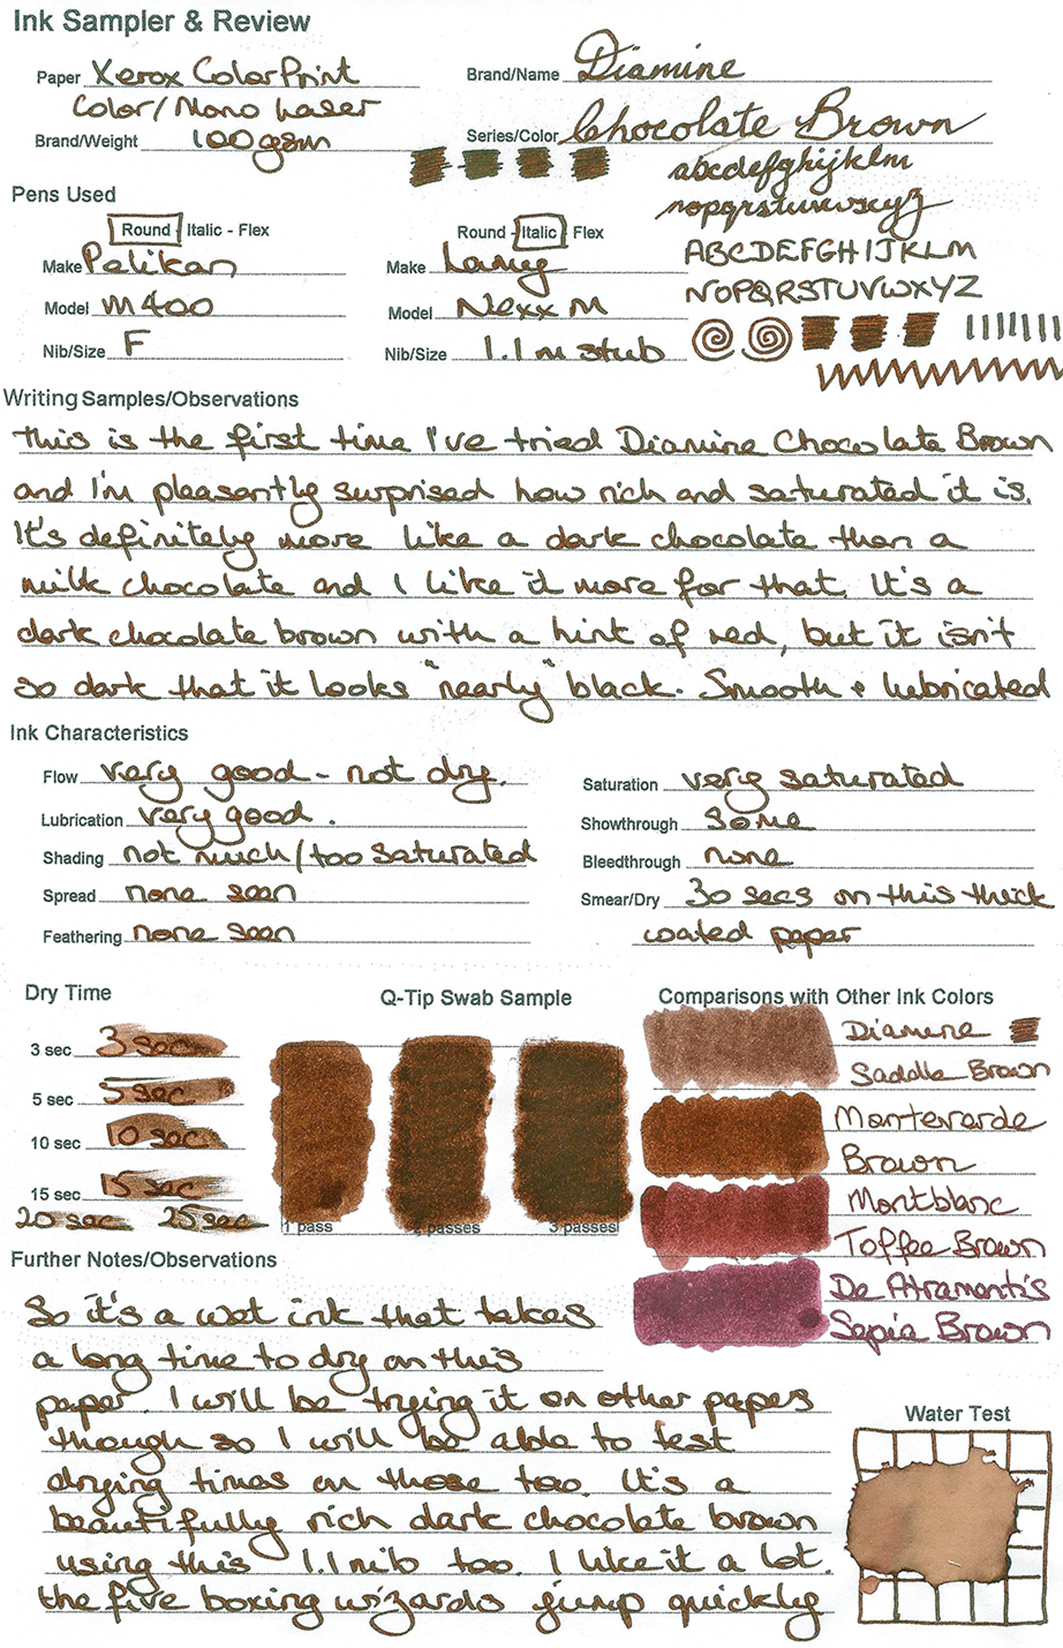 Ink Sampler & Review
Paper Xerox ColorPrint
Color/Mono Laser
Brand/Weight 100gsm
Brand/Name Diamine
Series/Color Chocolate Brown
abcdefghijklm
nopqrstuvwxyz
ABCDEFGHIJKLM
NOPQRSTUVWXYZ
Pens Used
Round Italic - Flex
Make Pelikan
Model M400
Nib/Size F
Round - Italic Flex
Make Lamy
Model Nexx M
Nib/Size 1.1m stub
Writing Samples/Observations
This is the first time I've tried Diamine Chocolate Brown
and I'm pleasantly surprised how rich and saturated it is.
It's definitely more like a dark chocolate than a
milk chocolate and I like it more for that. It's a
dark chocolate brown with a hint of red, but it isn't
so dark that it looks "nearly" black. Smooth & lubricated
Ink Characteristics
Flow very good - not dry.
Lubrication very good.
Shading not much/too saturated
Spread none seen
Feathering none seen
Saturation very saturated
Showthrough some
Bleedthrough none
Smear/Dry 30 secs on this thick
coated paper
Dry Time
3 sec 3 sec
5 sec 5 sec
10 sec 10 sec
15 sec 15 sec
20 sec 25 sec
Q-Tip Swab Sample
1 pass 2 passes 3 passes
Comparisons with Other Ink Colors
Diamine
Saddle Brown
Monteverde
Brown
Montblanc
Toffee Brown
De Atramentis
Sepia Brown
Further Notes/Observations
So it's a wet ink that takes
a long time to dry on this
paper. I will be trying it on other papers
though so I will be able to test
drying times on those too. It's a
beautifully rich dark chocolate brown
using this 1.1 nib too. I like it a lot.
the five boxing wizards jump quickly
Water Test